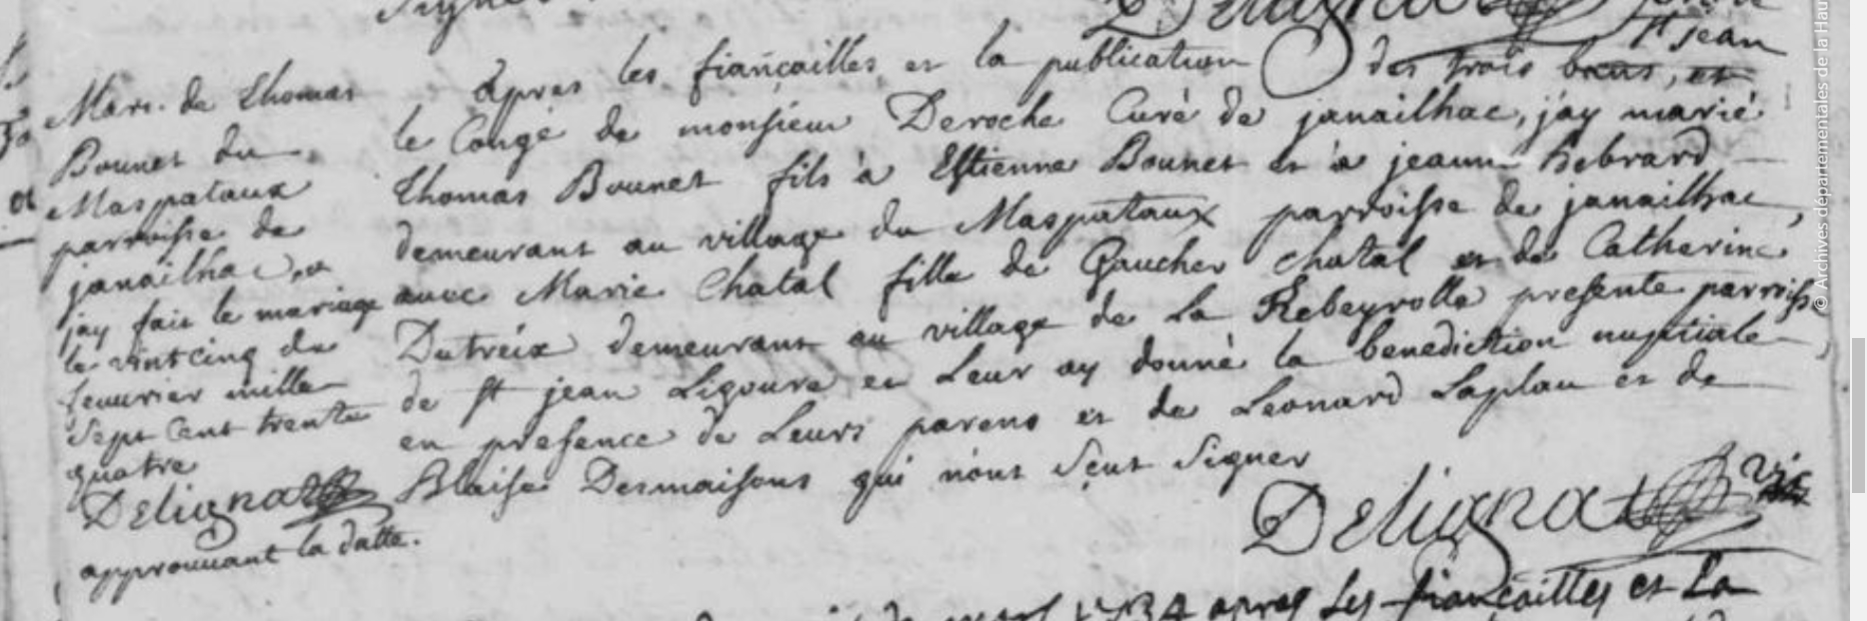 signer
Delignat
St jean
Mari. de thomas
Bounet du
Maspataux
parroisse de
janailhac, et
jay fait le mariage
le vintcinq de
feuurier mille
sept cent trente
quatre
Delignat
approuuant la datte.
Apres les fiançailles et la publication des trois bans, et
le Congé de monsieur Deroche Curé de janailhac, jay marié
thomas Bounet fils à Estienne Bounet et à jeanne hebrard
demeurant au village du Maspataux parroisse de janailhac,
auec Marie Chatal fille de Gaucher chatal et de Catherine
Dutreix demeurant au village de La Rebeyrolle presente parroisse
de st jean Ligoure et Leur ay donné la benediction nuptiale
en presence de Leurs parens et de Leonard Laplau et de
Blaise Desmaisons qui n'ont sçeut signer
Delignat vic
1734 apres Les fiançailles et La
© Archives départementales de la Hau